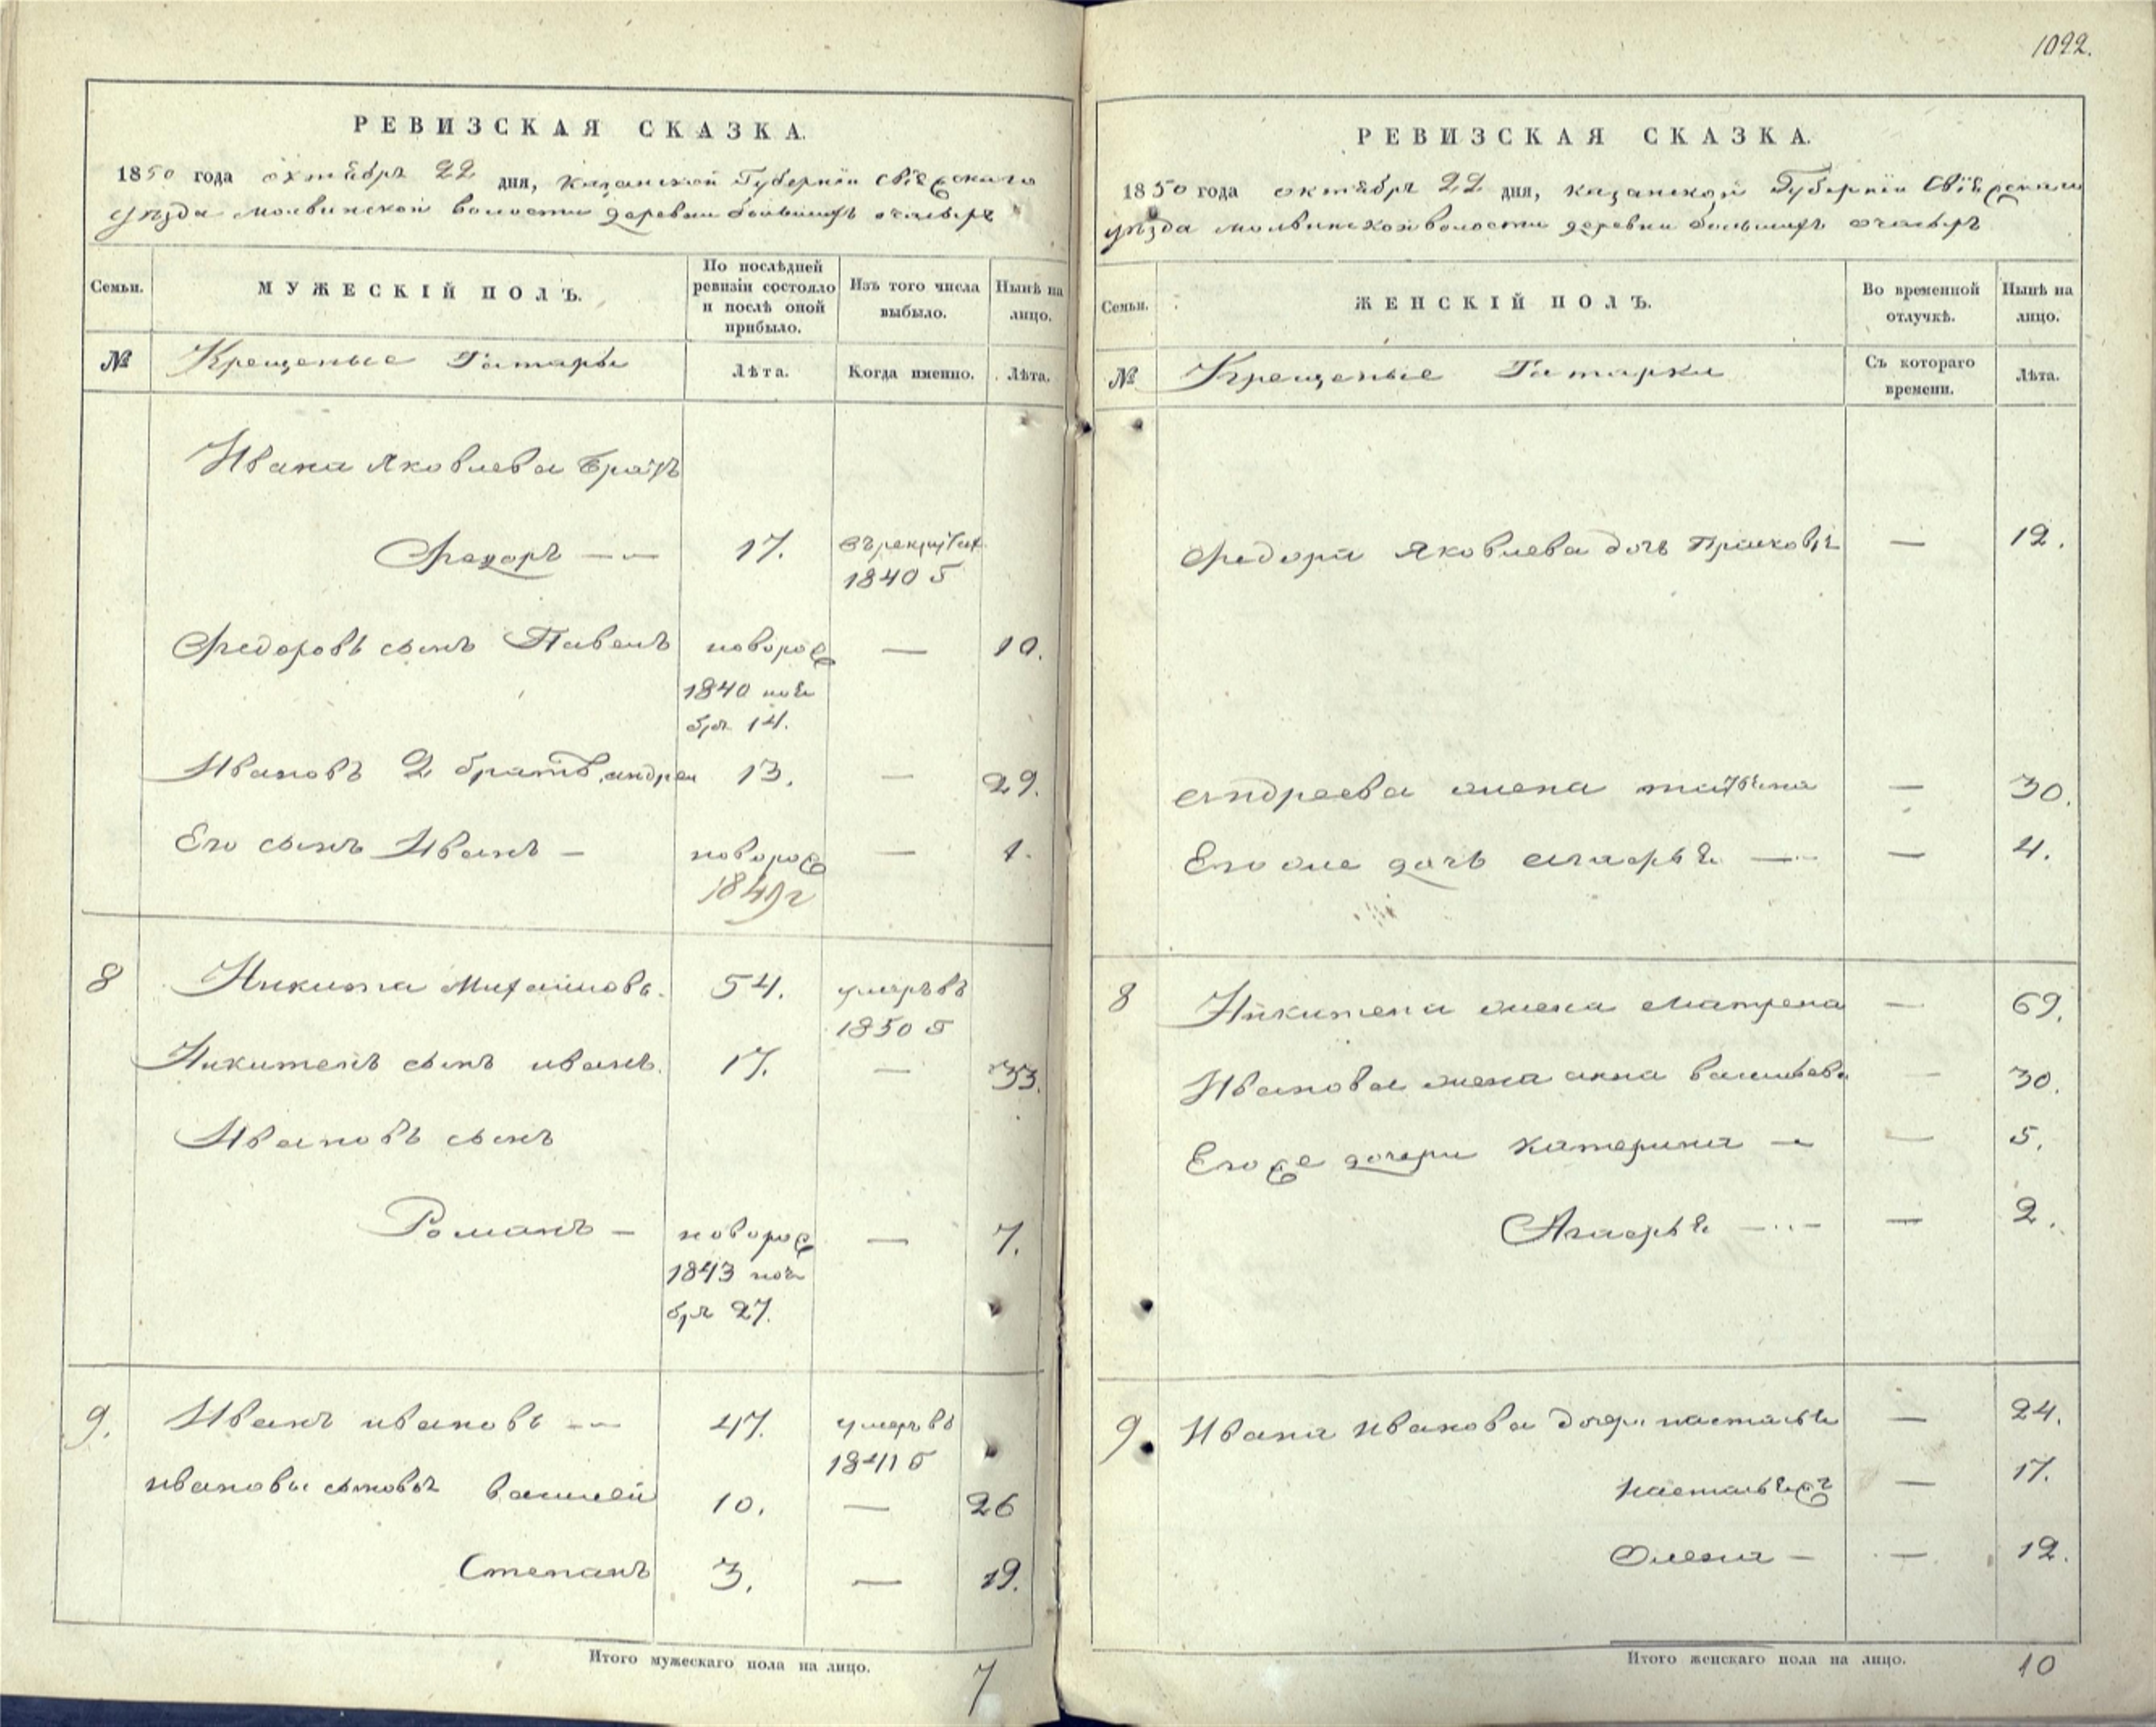 1022.
РЕВИЗСКАЯ СКАЗКА.
1850 года октября 22 дня, Казанской Губернiи Свiяжскаго
уѣзда Молвинской волости деревни большихъ
Семьи.
МУЖЕСКIЙ ПОЛЪ.
По послѣдней
ревизiи состояло
и послѣ оной
прибыло.
Изъ того числа
выбыло.
Нынѣ на
лицо.
№
Крещеные Татары
Лѣта.
Когда именно.
Лѣта.
Ивана Яковлева братъ
Федоръ — 17. въ рекрутах
1840 г
Федоровъ сынъ Павелъ новорож — 10.
1840 ноя
бря 14.
Ивановъ 2 братъ андреи 13. — 29.
Его сынъ Иванъ — новорож — 1.
1849 г
8 Никита Михаиловъ. 54. умеръ въ
1850 г
Никитенъ сынъ иванъ. 17. — 33.
Ивановъ сынъ
Романъ — новорож — 7.
1843 ноя
бря 27.
9. Иванъ ивановъ — 47. умеръ въ
1841 г
ивановы сыновья василей 10. — 26
Степанъ 3. — 19.
Итого мужескаго пола на лицо. 7
РЕВИЗСКАЯ СКАЗКА.
1850 года октября 22 дня, казанской Губернiи Свiяжскаго
уѣзда молвинской волости деревни большихъ
Семьи.
ЖЕНСКIЙ ПОЛЪ.
Во временной
отлучкѣ.
Нынѣ на
лицо.
№
Крещеные Татарки
Съ котораго
времени.
Лѣта.
Федора Яковлева дочь Прасковья — 12.
андреева жена татьяна — 30.
Его же дочь — 4.
8 Никитена жена Матрена — 69.
Иванова жена анна васильева — 30.
Его же дочери Катерина — 5.
— 2.
9 Ивана Иванова дочери настасья — 24.
настасья ж — 17.
Олена — 12.
Итого женскаго пола на лицо. 10